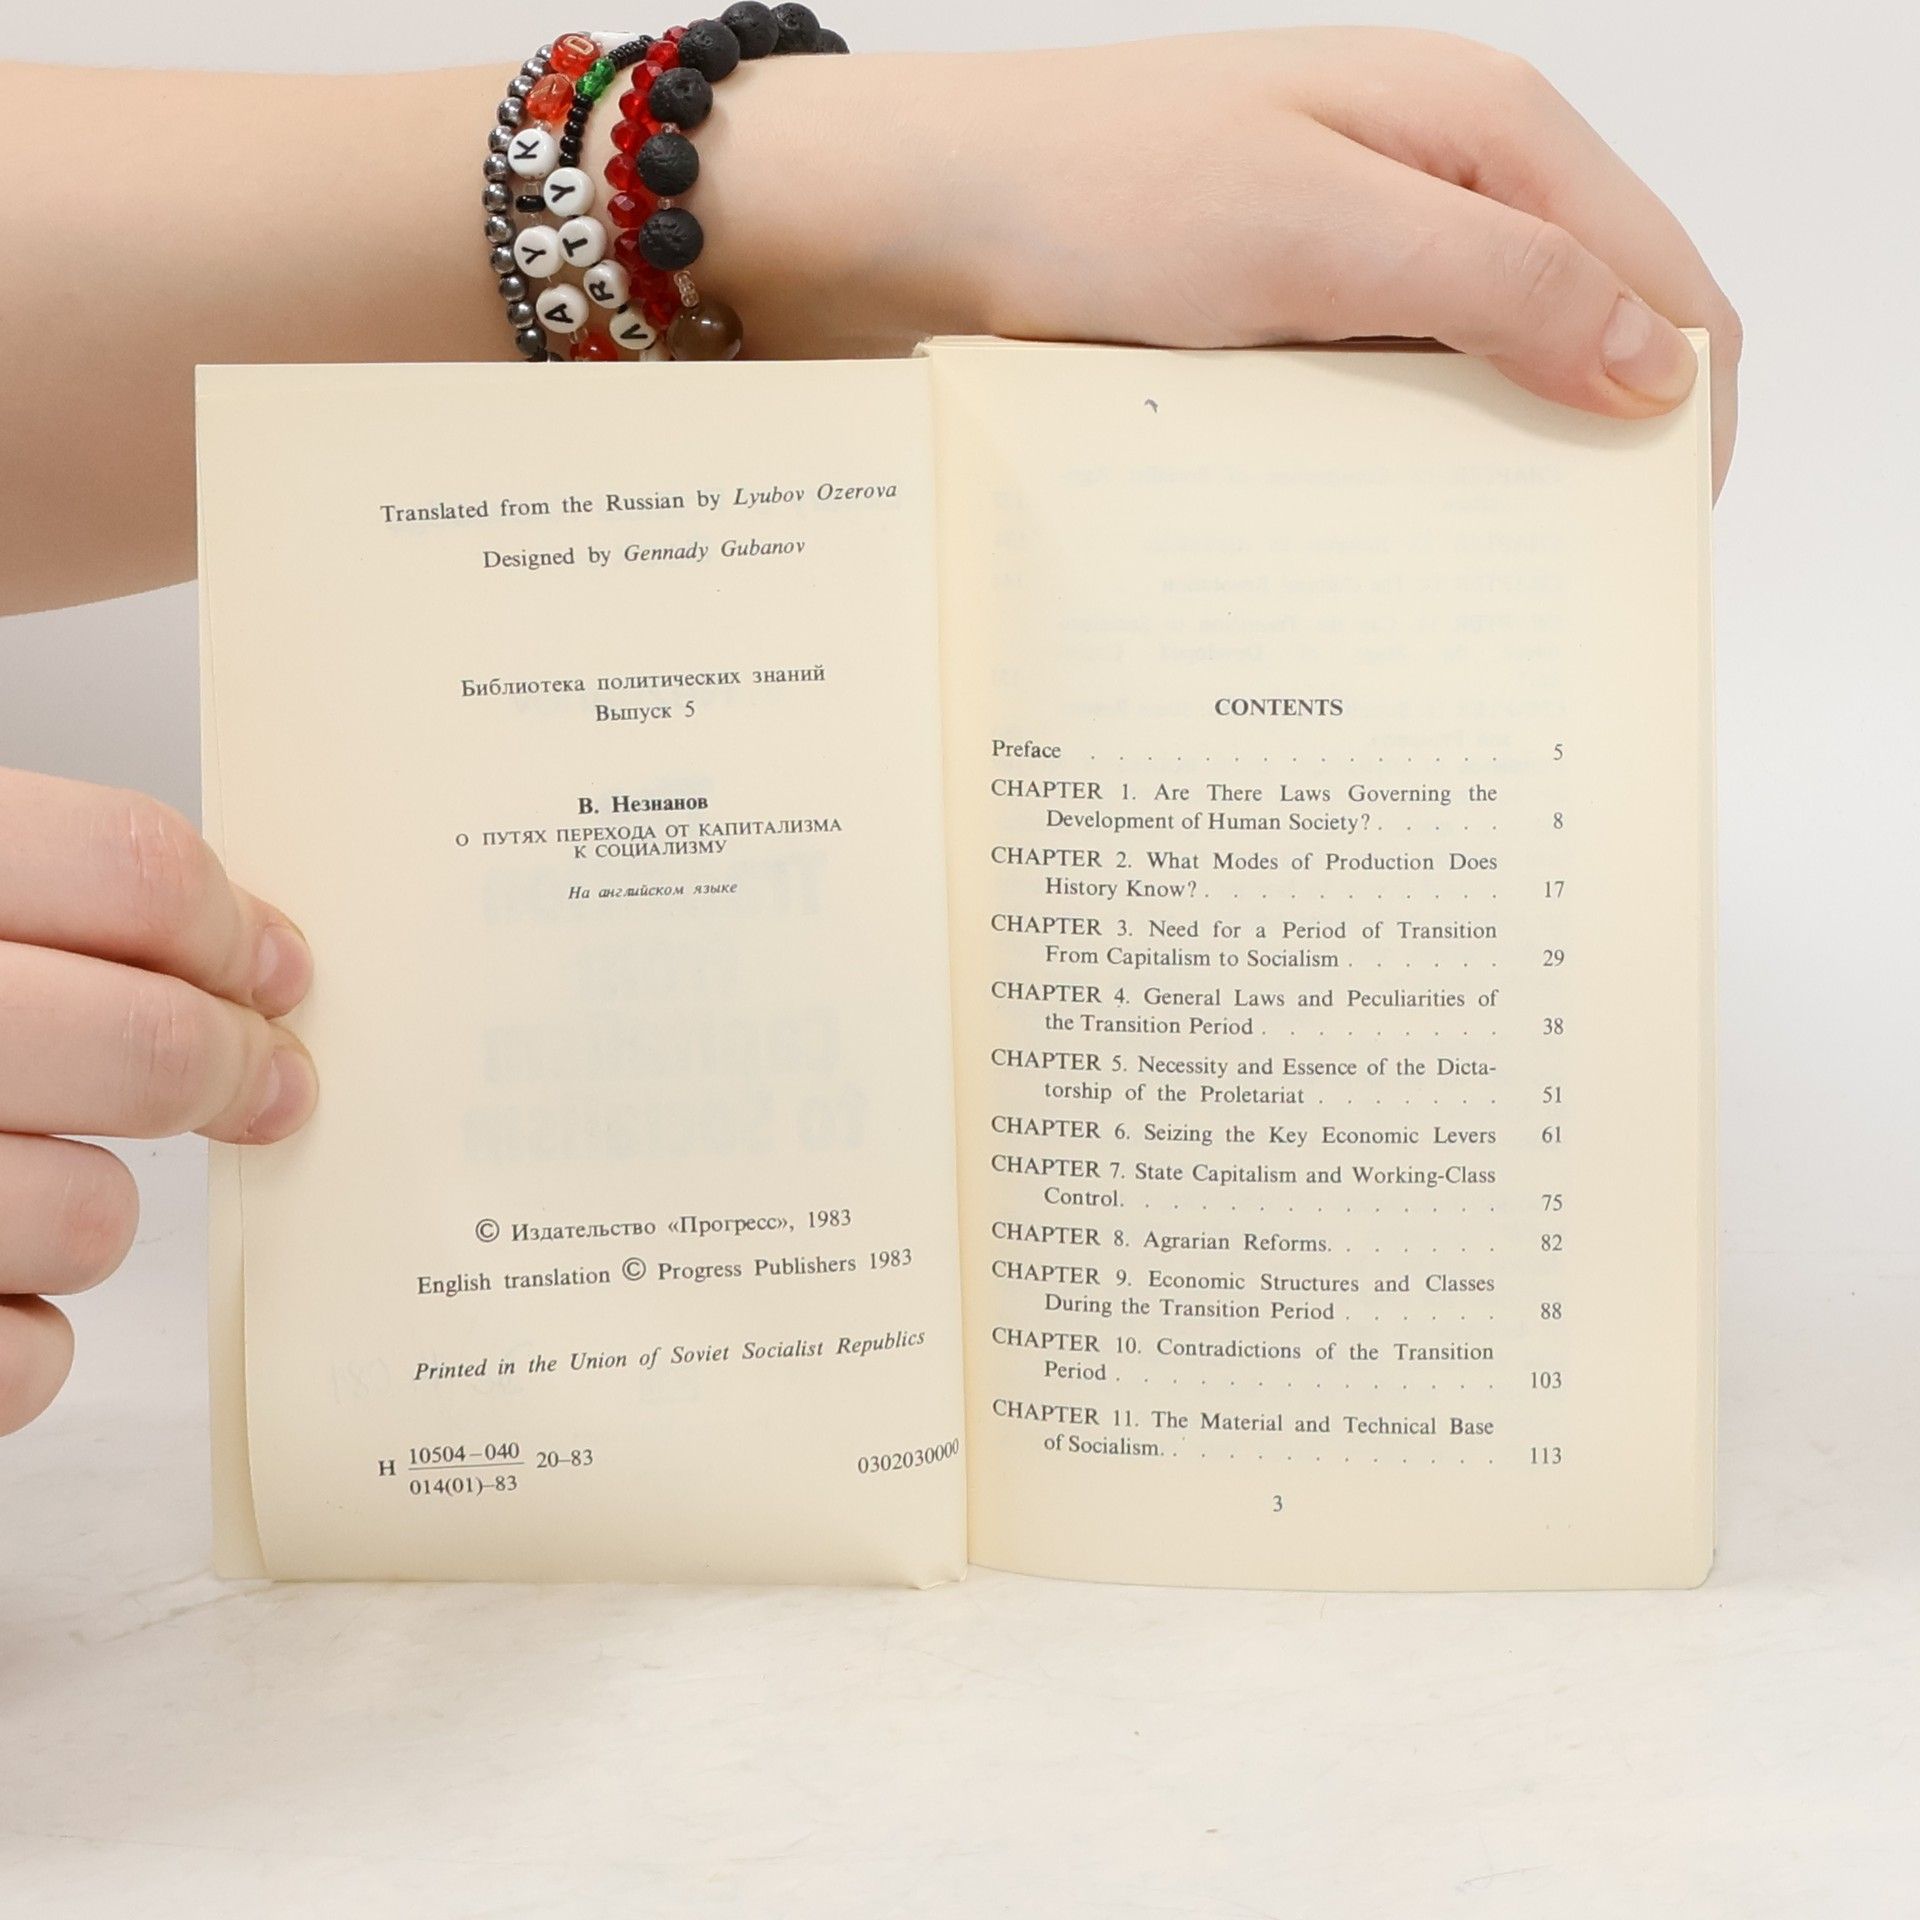 K
Y
A
Y
T
R
Translated from the Russian by Lyubov Ozerova
Designed by Gennady Gubanov
Библиотека политических знаний
Выпуск 5
В. Незнанов
О ПУТЯХ ПЕРЕХОДА ОТ КАПИТАЛИЗМА
К СОЦИАЛИЗМУ
На английском языке
© Издательство «Прогресс», 1983
English translation © Progress Publishers 1983
Printed in the Union of Soviet Socialist Republics
Н 10504–040 20–83
014(01)–83
0302030000
CONTENTS
Preface . . . . . . . . . . . . . . . 5
CHAPTER 1. Are There Laws Governing the
Development of Human Society? . . . . . 8
CHAPTER 2. What Modes of Production Does
History Know? . . . . . . . . . . . 17
CHAPTER 3. Need for a Period of Transition
From Capitalism to Socialism . . . . . . 29
CHAPTER 4. General Laws and Peculiarities of
the Transition Period . . . . . . . . . 38
CHAPTER 5. Necessity and Essence of the Dicta-
torship of the Proletariat . . . . . . . 51
CHAPTER 6. Seizing the Key Economic Levers 61
CHAPTER 7. State Capitalism and Working-Class
Control. . . . . . . . . . . . . . 75
CHAPTER 8. Agrarian Reforms. . . . . . . 82
CHAPTER 9. Economic Structures and Classes
During the Transition Period . . . . . . 88
CHAPTER 10. Contradictions of the Transition
Period . . . . . . . . . . . . . . 103
CHAPTER 11. The Material and Technical Base
of Socialism. . . . . . . . . . . . . 113
3